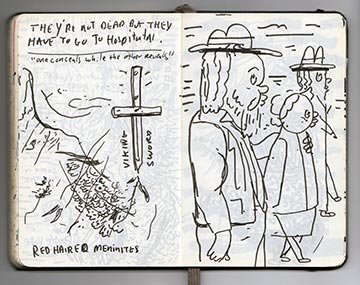 THEY'RE NOT DEAD BUT THEY
HAVE TO GO TO HOSPITAL.
"one conceals while the other reveals"
VIKING
SWORD
RED HAIRED MENINITES